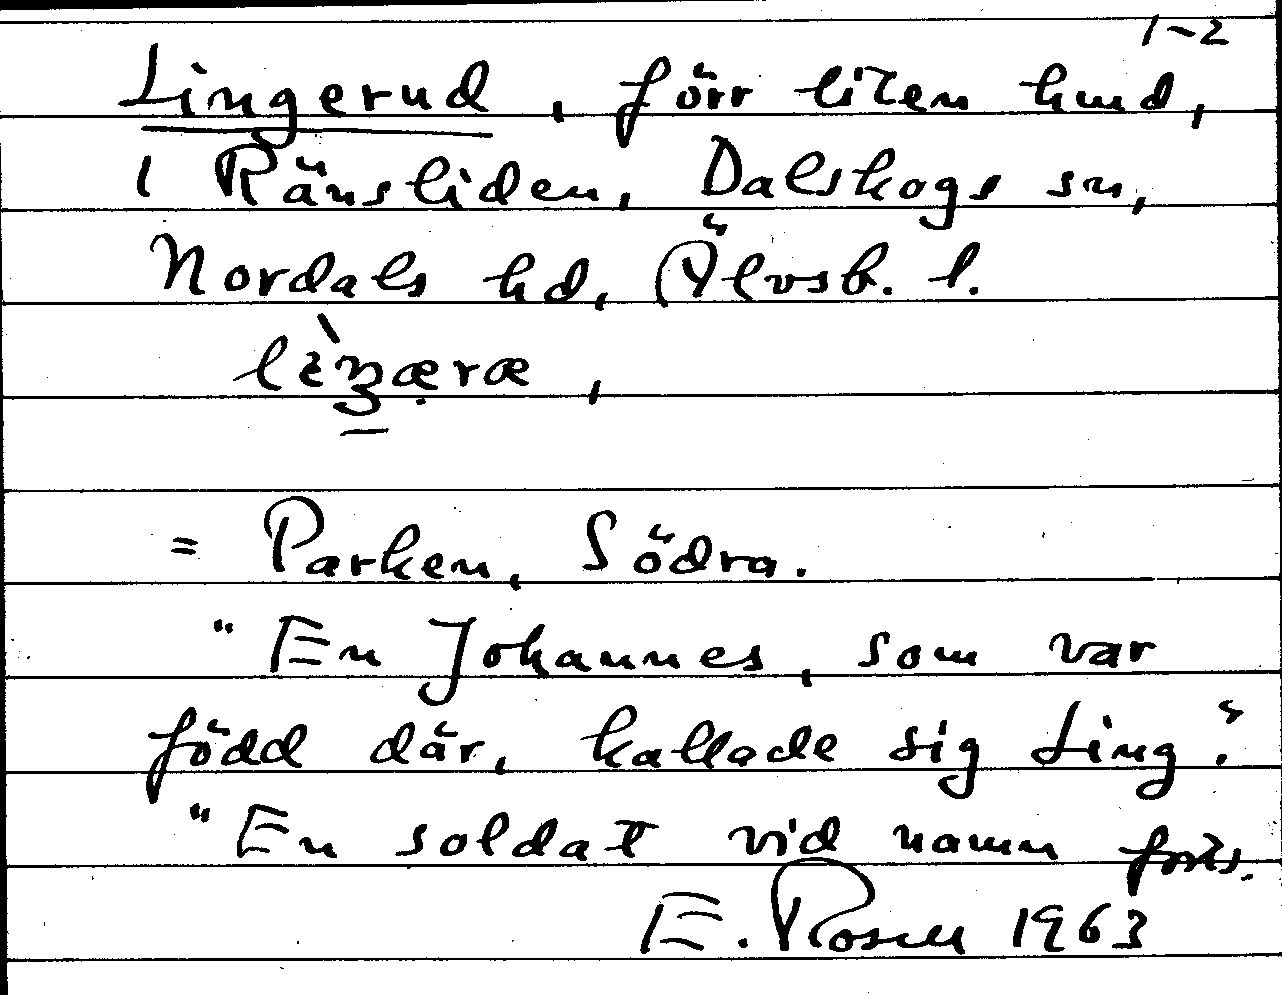 1-2
Lingerud, förr liten lund,
i Ränsliden, Dalskogs sn,
Nordals hd, Älvsb. l.
= Parken, Södra.
"En Johannes, som var
född där, kallade sig Ling".
"En soldat vid namn forts.
E. Rosell 1963